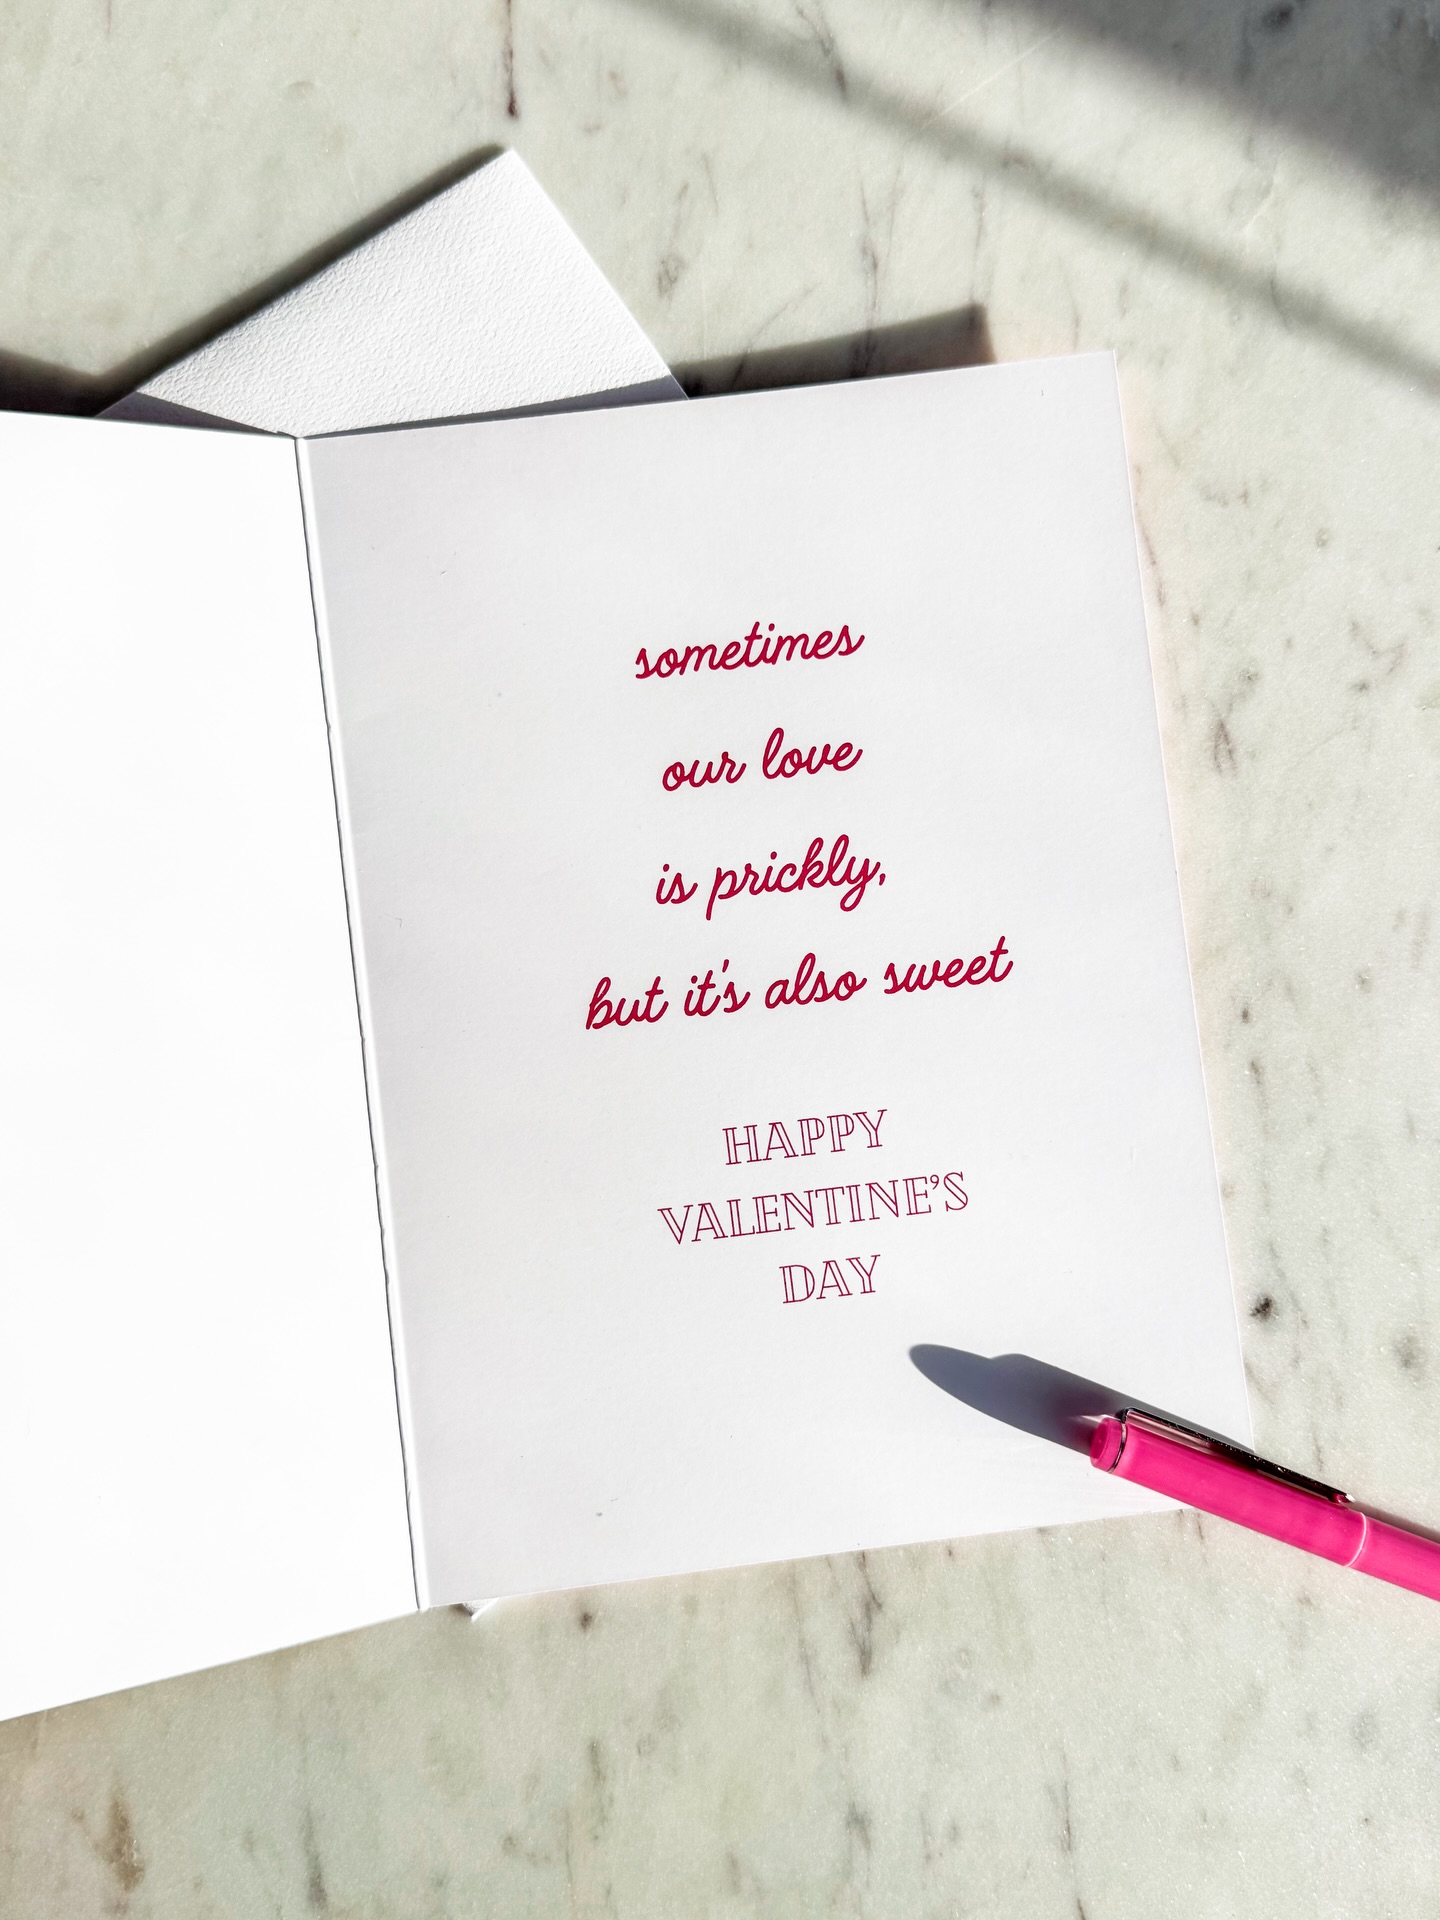 sometimes
our love
is prickly,
but it's also sweet
HAPPY
VALENTINE'S
DAY